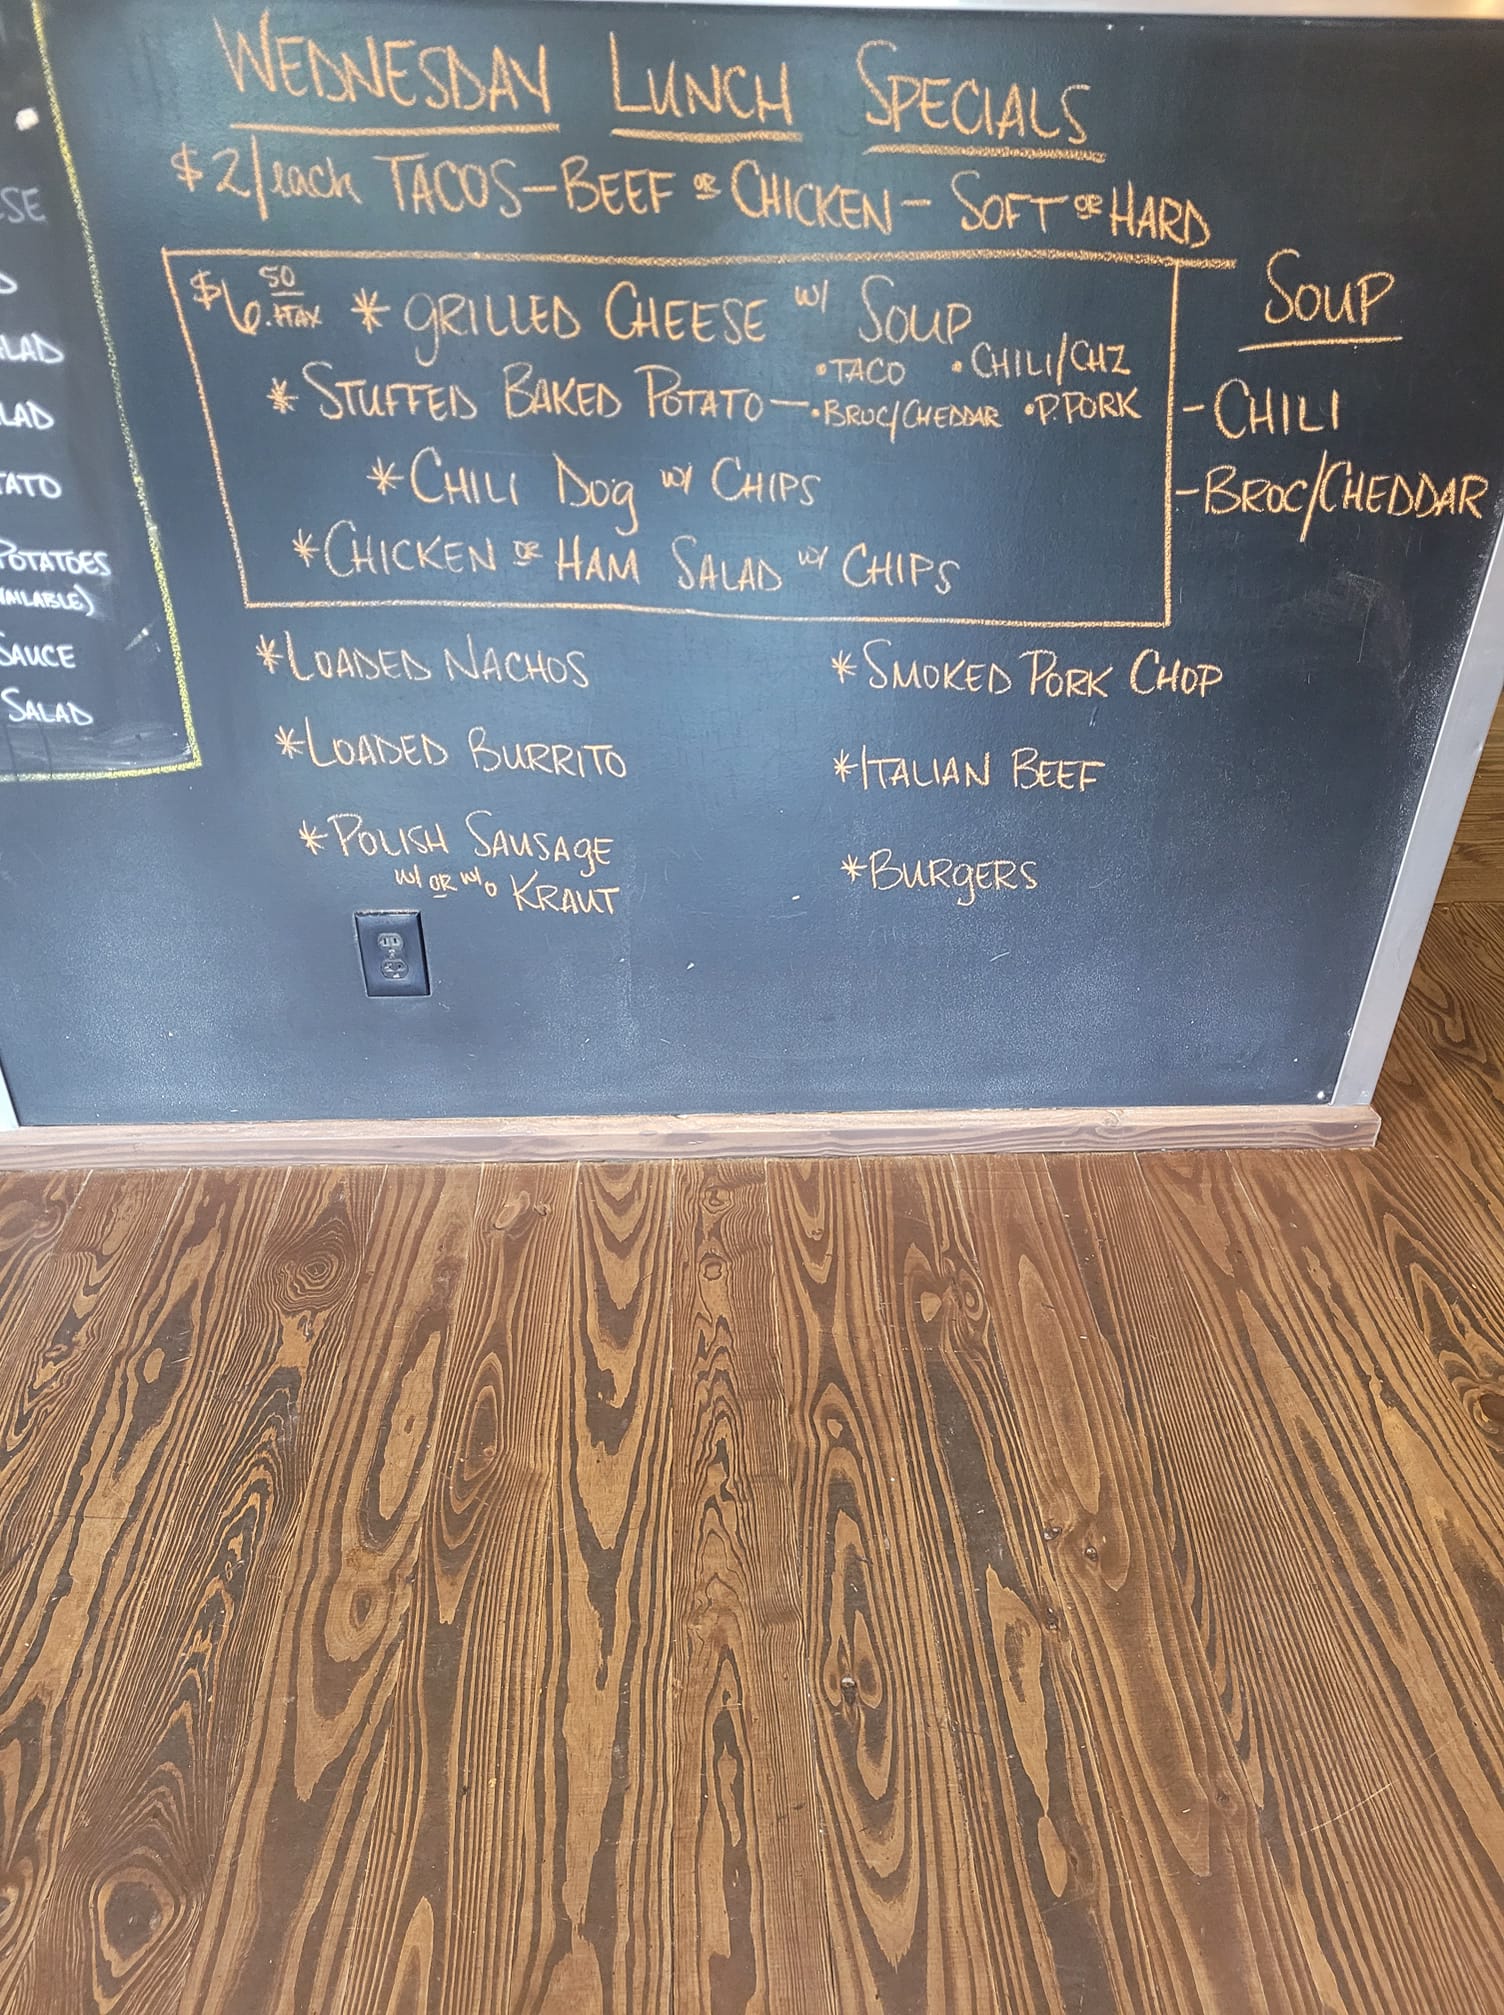 WEDNESDAY LUNCH SPECIALS
$2/each TACOS-BEEF OR CHICKEN- SOFT OR HARD
$6.50 +TAX * GRILLED CHEESE w/ SOUP
* STUFFED BAKED POTATO — •TACO •CHILI/CHZ
•BROC/CHEDDAR •P.PORK
*CHILI DOg w/ CHIPS
*CHICKEN OR HAM SALAD w/ CHIPS
SOUP
-CHILI
-BROC/CHEDDAR
*LOADED NACHOS
*LOADED BURRITO
*POLISH SAUSAgE
w/ OR w/o KRAUT
*SMOKED PORK CHOP
*ITALIAN BEEF
*BURgERS
POTATOES
SAUCE
SALAD